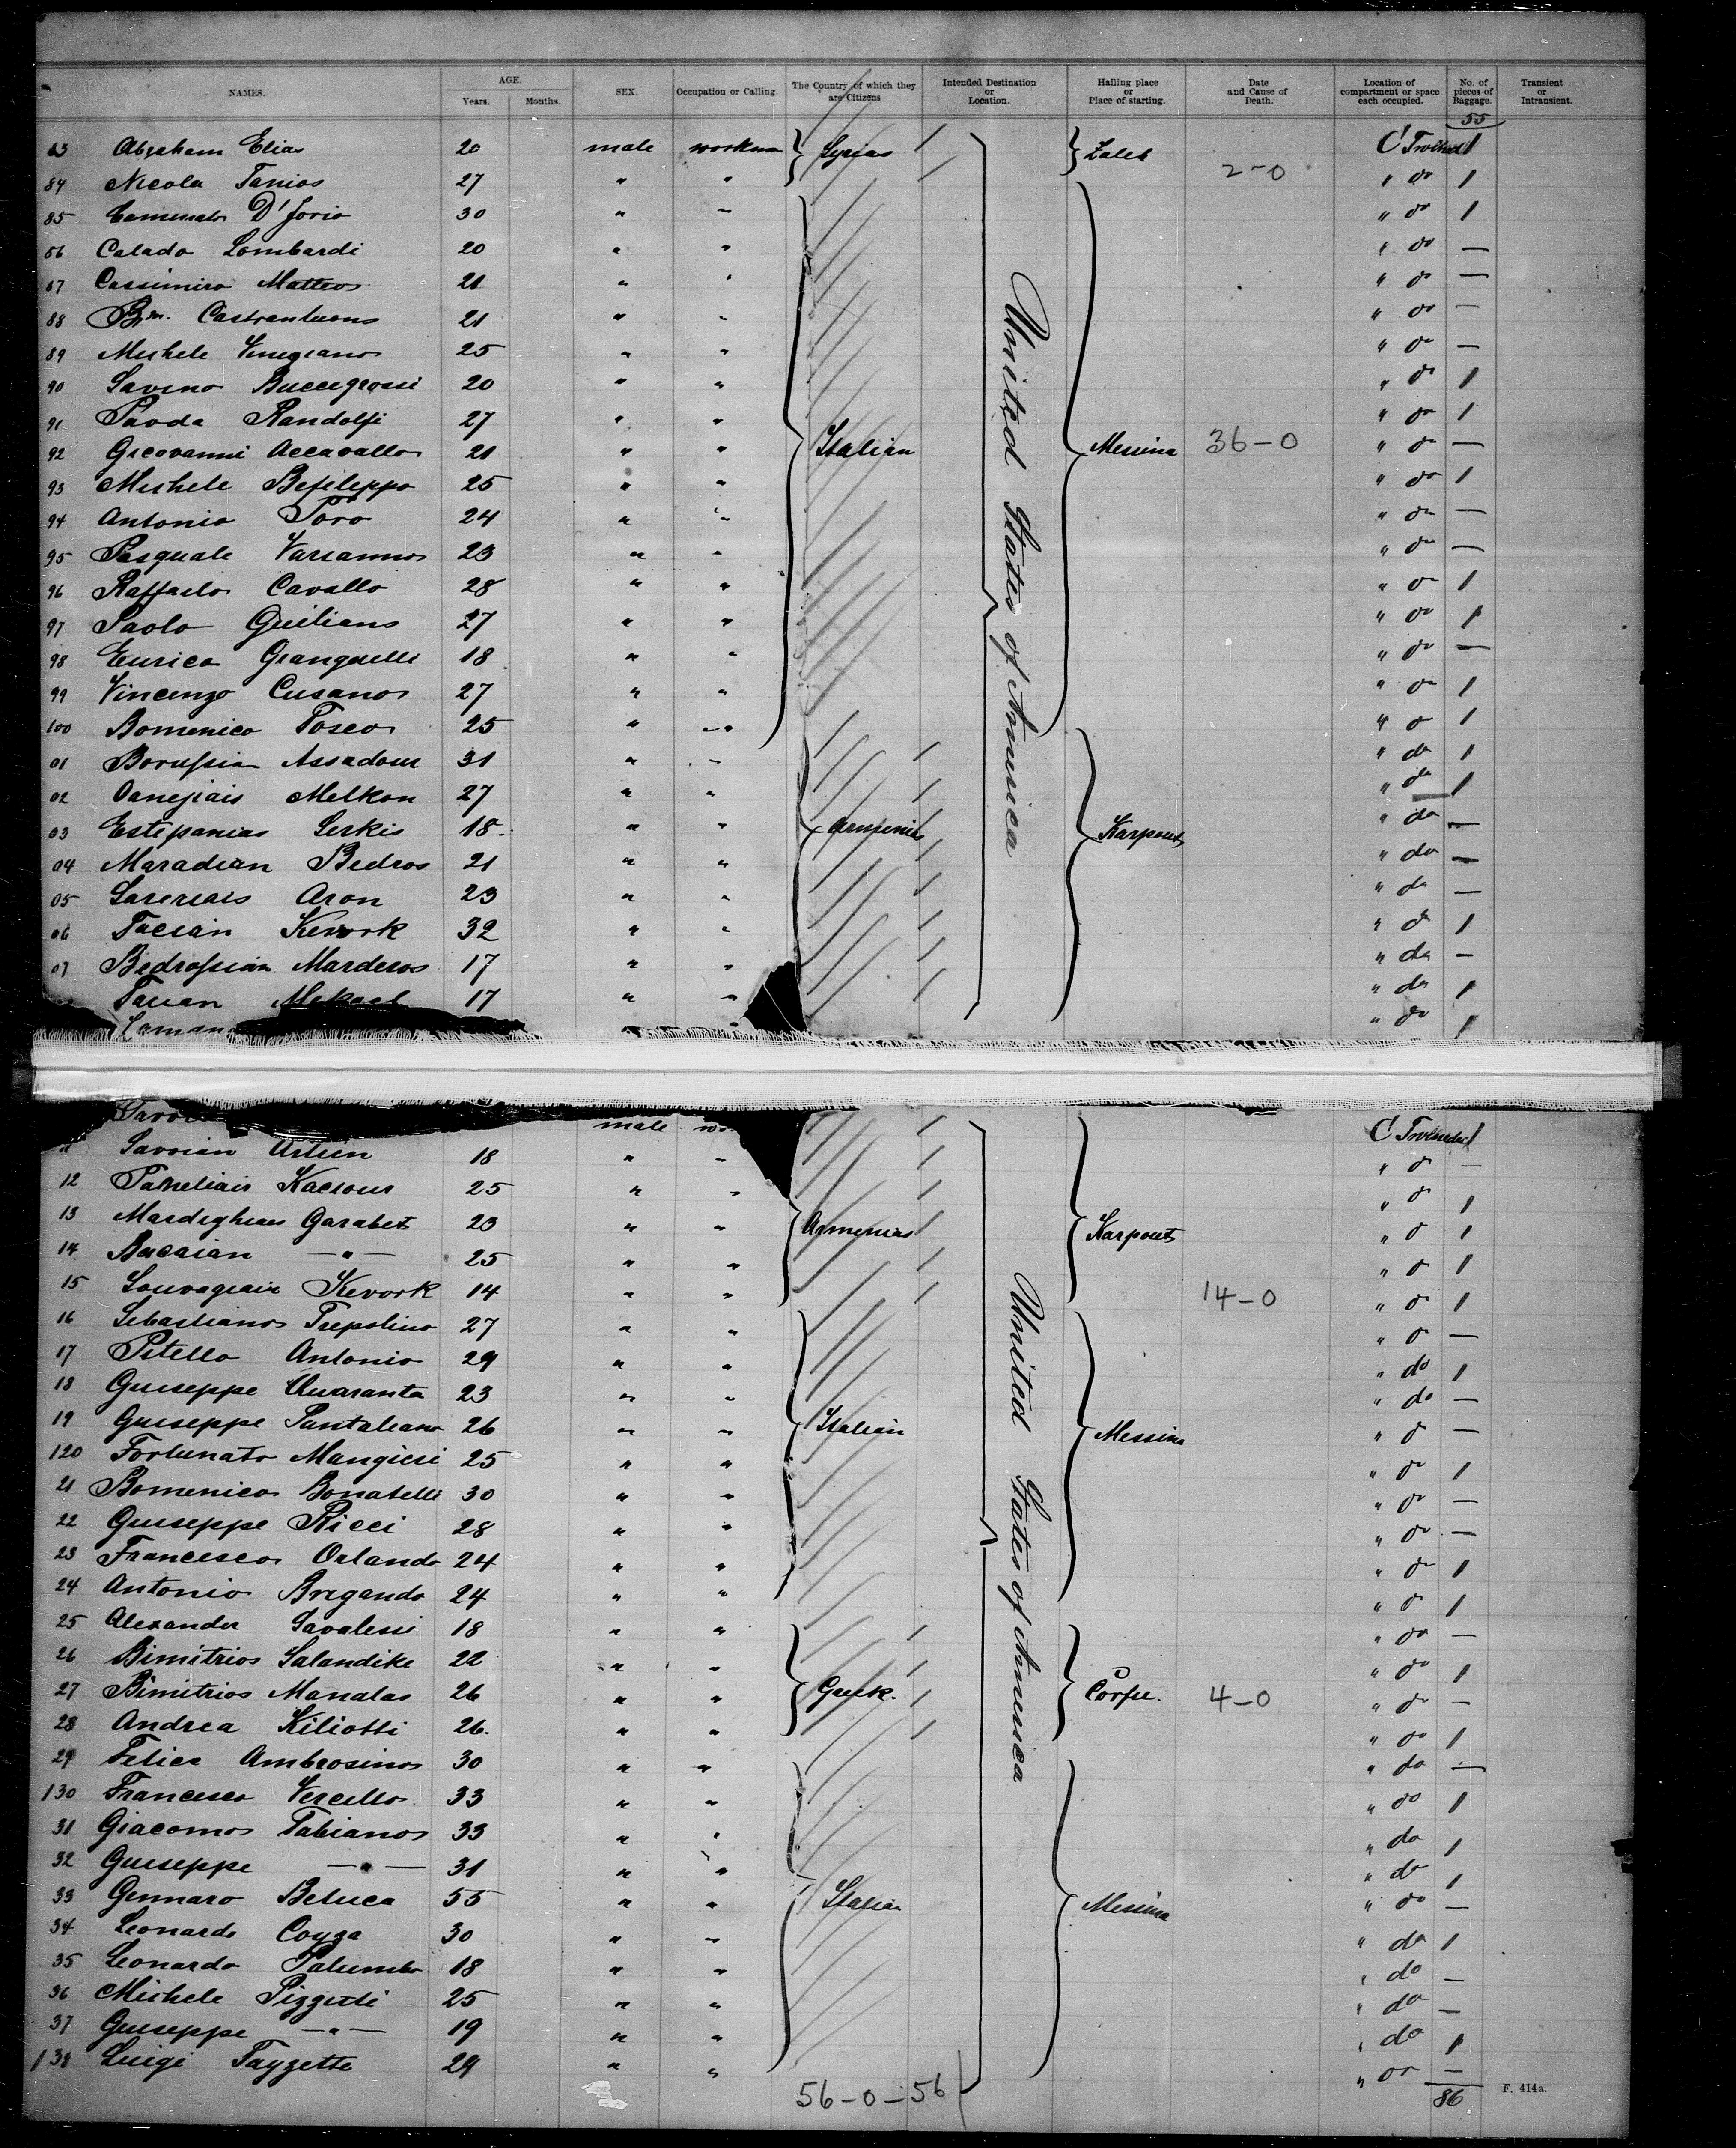 NAMES. AGE. Years. Months. SEX. Occupation or Calling. The Country of which they are Citizens Intended Destination or Location. Hailing place or Place of starting. Date and Cause of Death. Location of compartment or space each occupied. No. of pieces of Baggage. Transient or Intransient.
55
83 Abraham Elias 20 male workman Syrias 1
84 Nicola Tanios 27 " " 2-0 " do 1
85 D'Jorio 30 " " " do 1
86 Calado Lombardi 20 " " " do —
87 Cassimiro Matteo 21 " " " do —
88 Castrantuono 21 " " " do —
89 Michele 25 " " " do —
90 Savino Buccegrossi 20 " " " do 1
91 Paoda Randolfi 27 " " " do 1
92 Giovanni Accavallo 21 " " Italian Messina 36-0 " do —
93 Michele Befileppo 25 " " " do 1
94 Antonio Toro 24 " " " do —
95 Pasquale Varianno 23 " " " do —
96 Raffaelo Cavallo 28 " " " do 1
97 Paolo Guiliano 27 " " " do 1
98 Eurico 18 " " " do —
99 Vincenzo Cusano 27 " " " do 1
100 Bomenico Tosco 25 " " " do 1
United States of America
01 Assadour 31 " " " do 1
02 Melkon 27 " " " do 1
03 Estepanias Serkis 18 " " Armenias Karpout " do —
04 Maradian Bedros 21 " " " do —
05 Aron 23 " " " do —
06 Kevork 32 " " " do 1
07 Bedrossian Marderos 17 " " " do —
Mekael 17 " " " do 1
" " " do 1
male 1
11 Savoian 18 " " " do —
12 25 " " " do 1
13 Garabet 23 " " Armenias Karpout " do 1
14 Bucaian —"— 25 " " " do 1
15 Kevork 14 " " 14-0 " do 1
16 Sebastiano Trepolino 27 " " " do —
17 Pitello Antonio 29 " " " do 1
18 Guiseppe Quaranta 23 " " " do —
19 Guiseppe Pantaleano 26 " " Italian Messina " do —
120 Fortunato Mangieri 25 " " " do 1
21 Bomenico Bonatelli 30 " " " do —
22 Guiseppe Ricci 28 " " " do —
23 Francesco Orlando 24 " " " do 1
24 Antonio Brigando 24 " " " do 1
United States of America
25 Alexander Savalessi 18 " " " do —
26 Bimitrios Salandike 22 " " " do 1
27 Bimitrios Manalas 26 " " Greek. Corfu. 4-0 " do —
28 Andrea Kiliotti 26. " " " do 1
29 Felice Ambrosino 30 " " " do —
130 Francesco Vercillo 33 " " " do 1
31 Giacomo Fabiano 33 " " " do 1
32 Guiseppe —"— 31 " " " do 1
33 Gennaro Beluca 55 " " Italian Messina " do —
34 Leonardo 30 " " " do 1
35 Leonardo Palumbo 18 " " " do —
36 Michele Pizzuti 25 " " " do —
37 Guiseppe —"— 19 " " " do 1
138 Luigi 29 " " " do —
56-0-56 86 F. 414a.